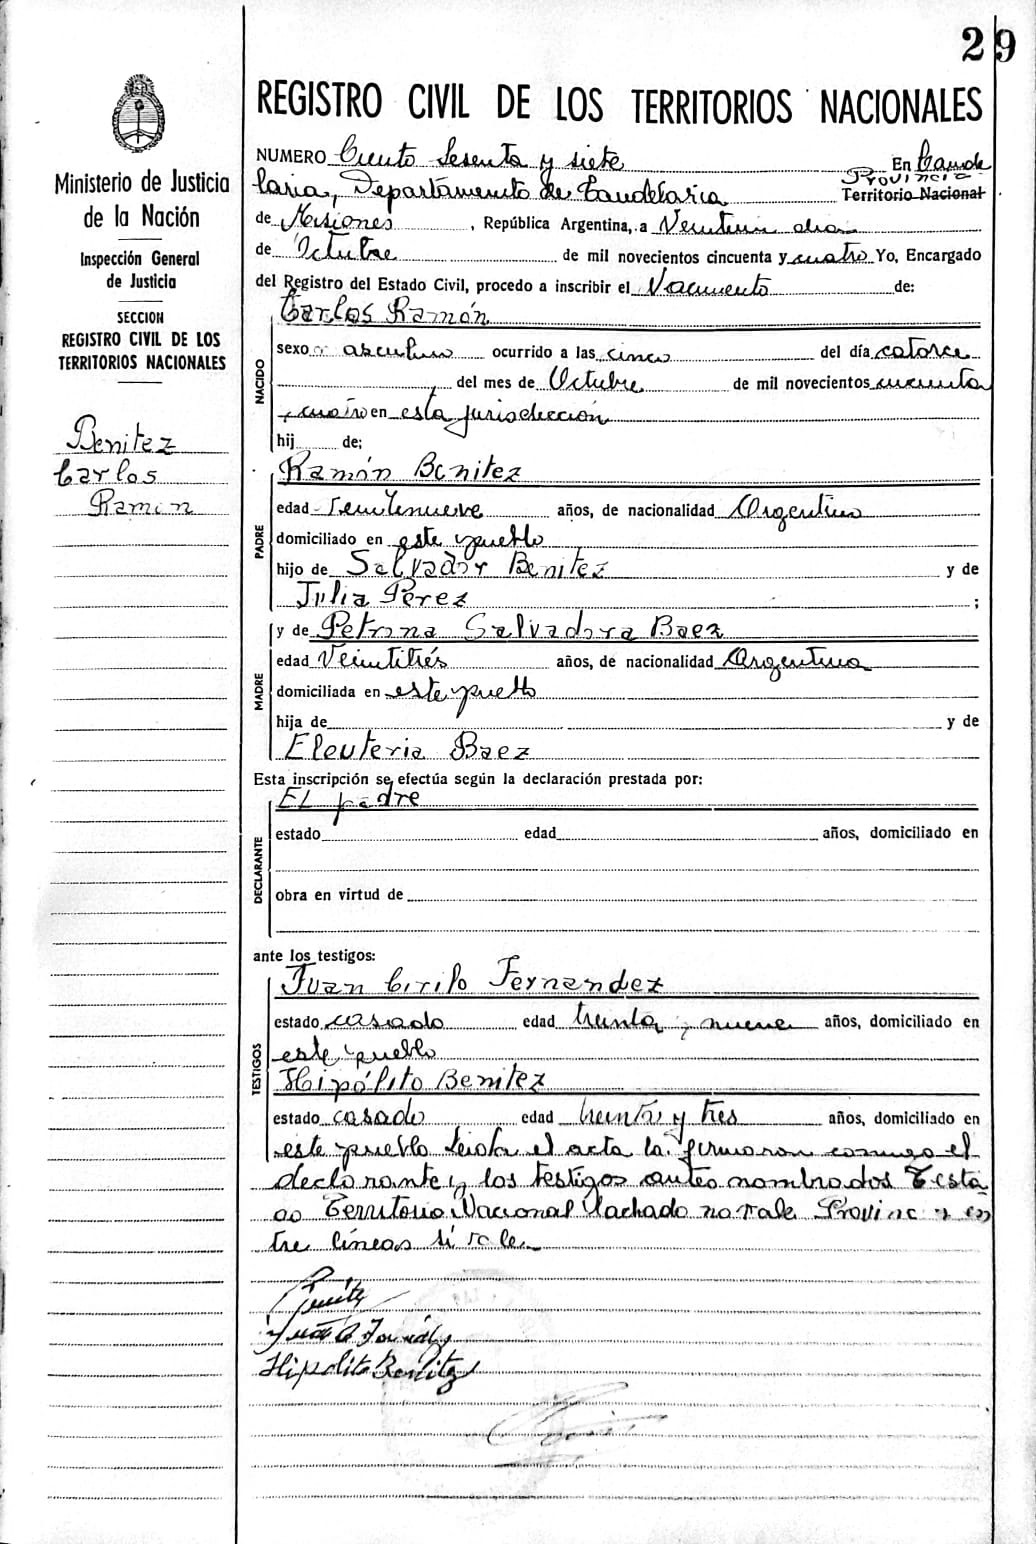 29
REGISTRO CIVIL DE LOS TERRITORIOS NACIONALES
Ministerio de Justicia
de la Nación
Inspección General
de Justicia
SECCION
REGISTRO CIVIL DE LOS
TERRITORIOS NACIONALES
Benitez
Carlos
Ramón
NUMERO Ciento Sesenta y siete En Cande
Provincia
laria, Departamento de Candelaria Territorio Nacional
de Misiones, República Argentina, a Veintiun dias
de Octubre de mil novecientos cincuenta y cuatro Yo, Encargado
del Registro del Estado Civil, procedo a inscribir el Nacimiento de:
NACIDO
Carlos Ramón
sexo masculino ocurrido a las cinco del día catorce
del mes de Octubre de mil novecientos cincuenta
y cuatro en esta jurisdicción
hij de;
PADRE
Ramón Benitez
edad años, de nacionalidad Argentino
domiciliado en este pueblo
hijo de Salvador Benitez y de
Julia Perez ;
MADRE
y de Petrona Salvadora Baez
edad Veintitrés años, de nacionalidad Argentina
domiciliada en este pueblo
hija de y de
Eleuteria Baez
Esta inscripción se efectúa según la declaración prestada por:
DECLARANTE
El padre
estado edad años, domiciliado en
obra en virtud de
ante los testigos:
TESTIGOS
Juan Cirilo Fernandez
estado casado edad treinta y nueve años, domiciliado en
este pueblo
Hipólito Benitez
estado casado edad treinta y tres años, domiciliado en
este pueblo Leida el acta la firmaron conmigo el
declarante y los testigos antes nombrados Testa
do Territorio Nacional tachado no vale Provincia en
tre lineas si vale
Benitez
Hipolito Benitez